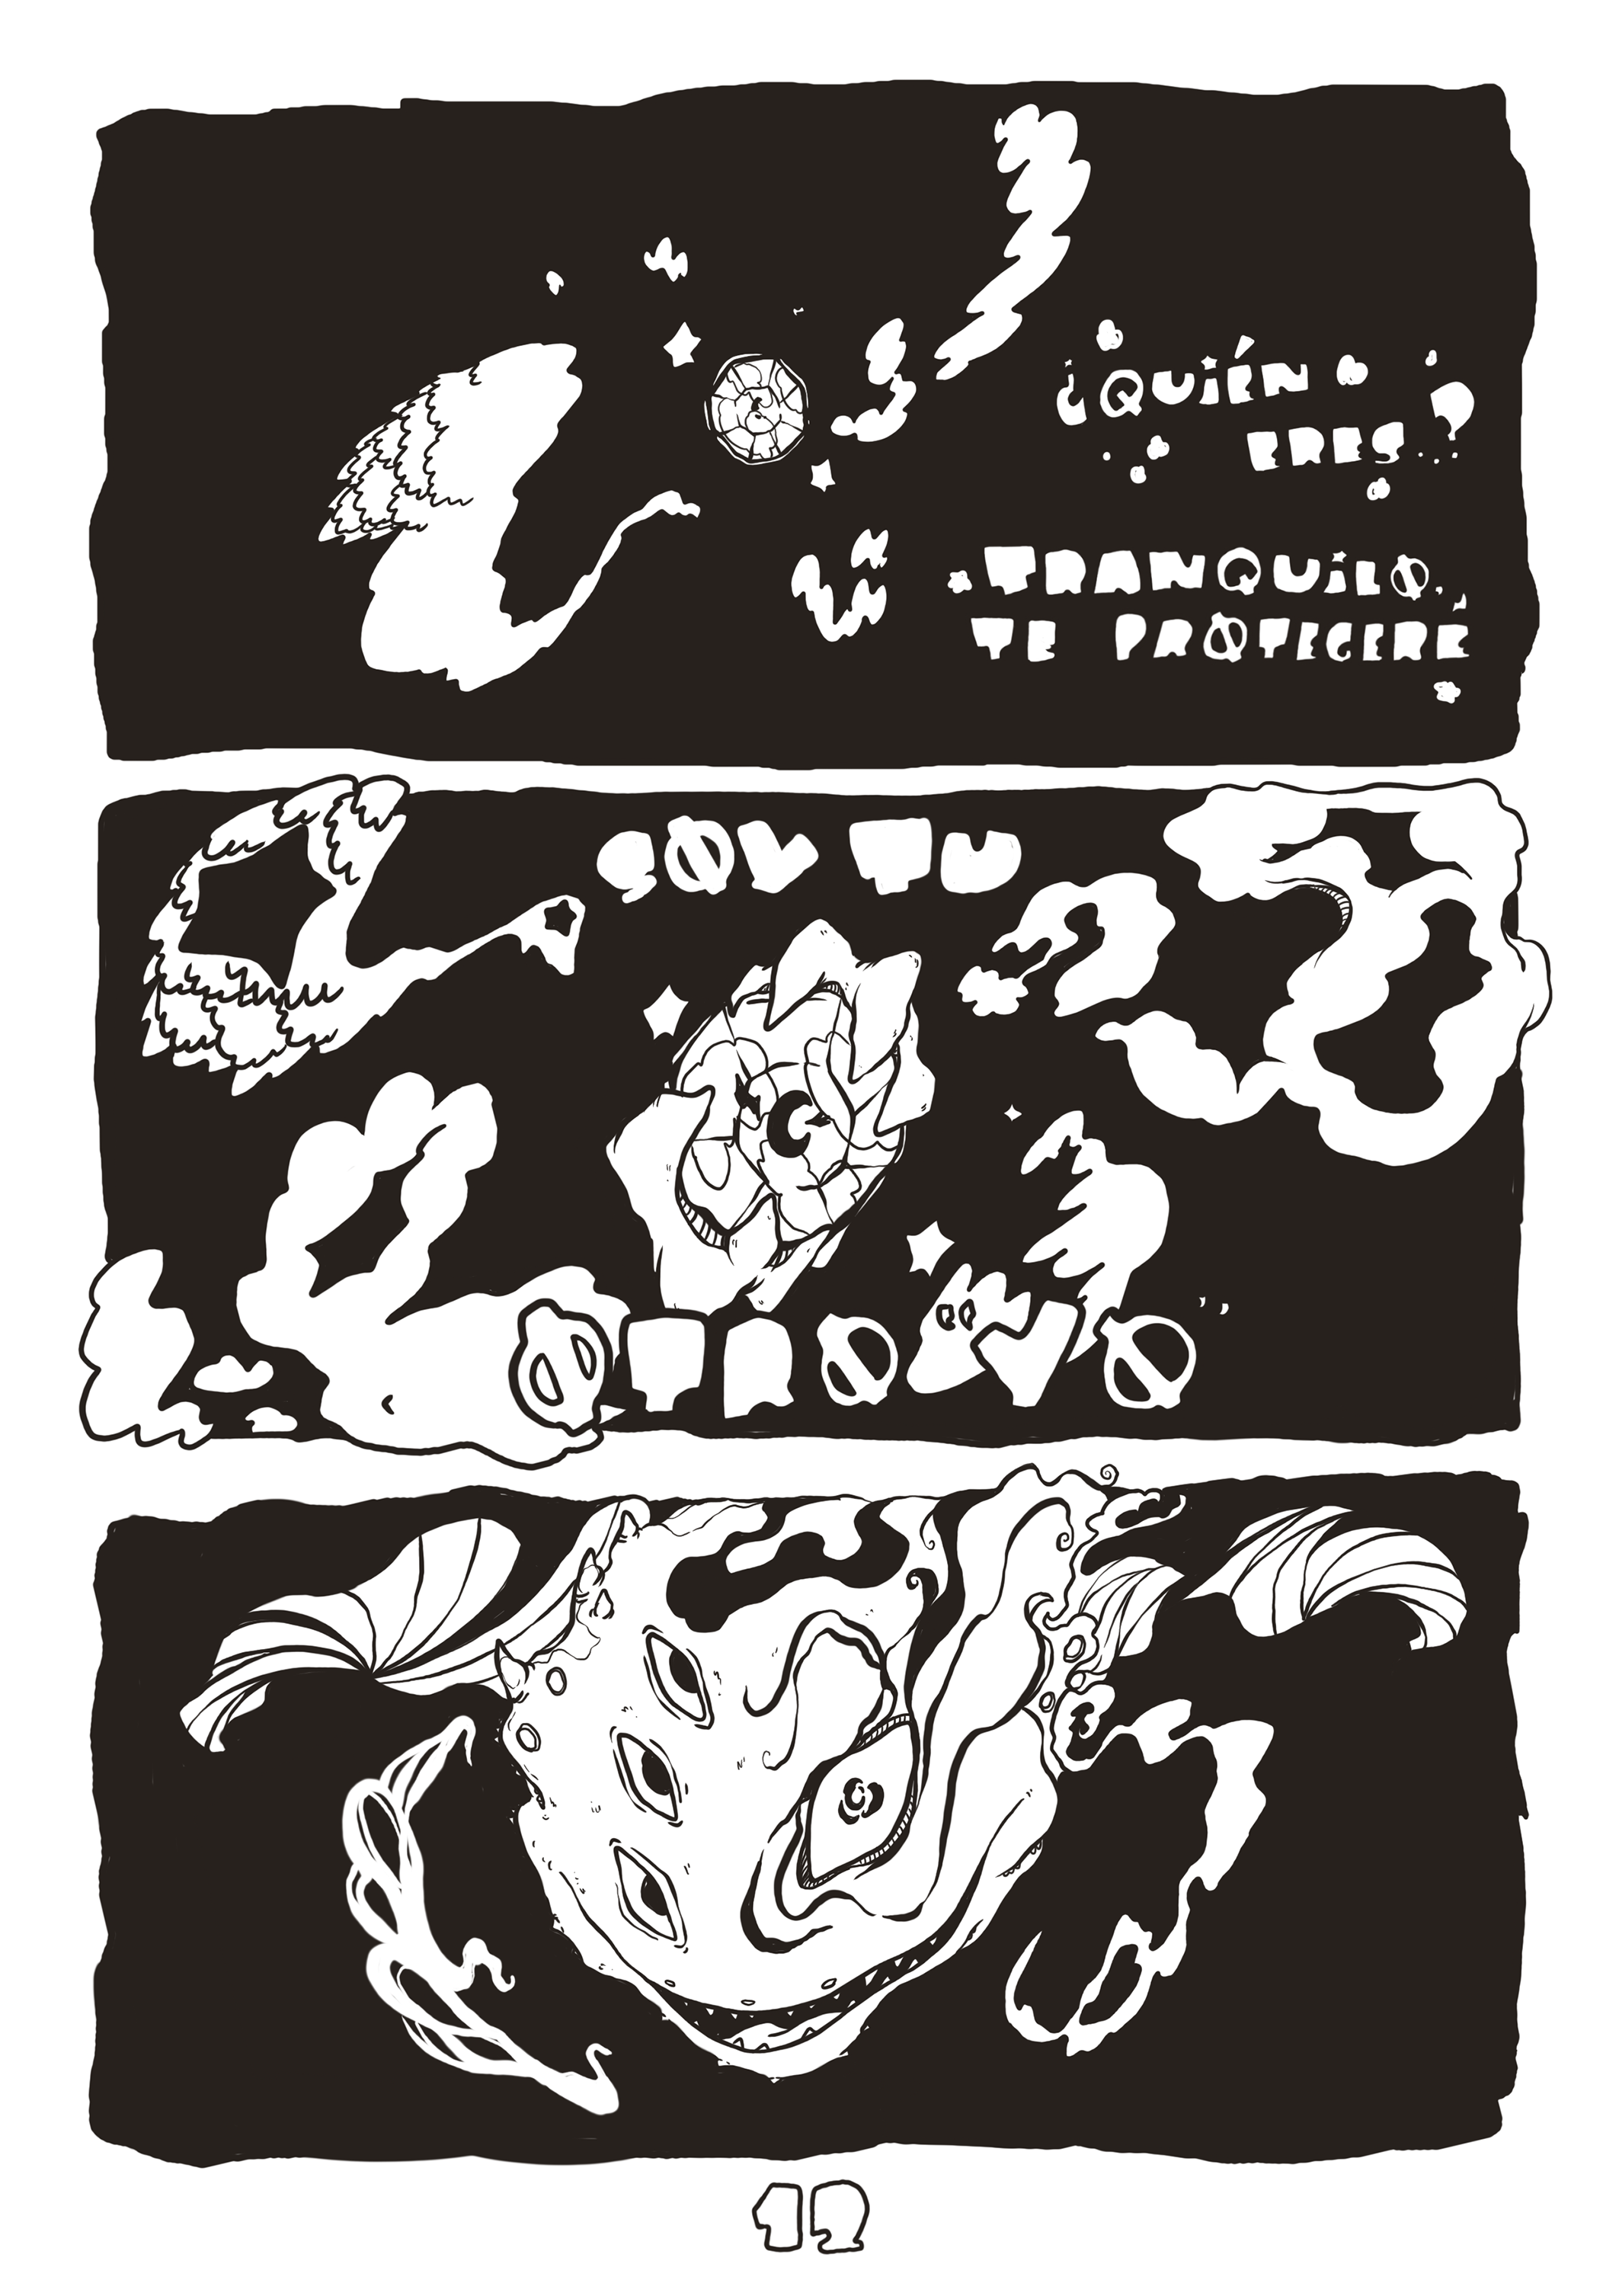 ¿QUIÉN
ERES?
TRANQUILO,
TE PROTEGERÉ
CON TU
12